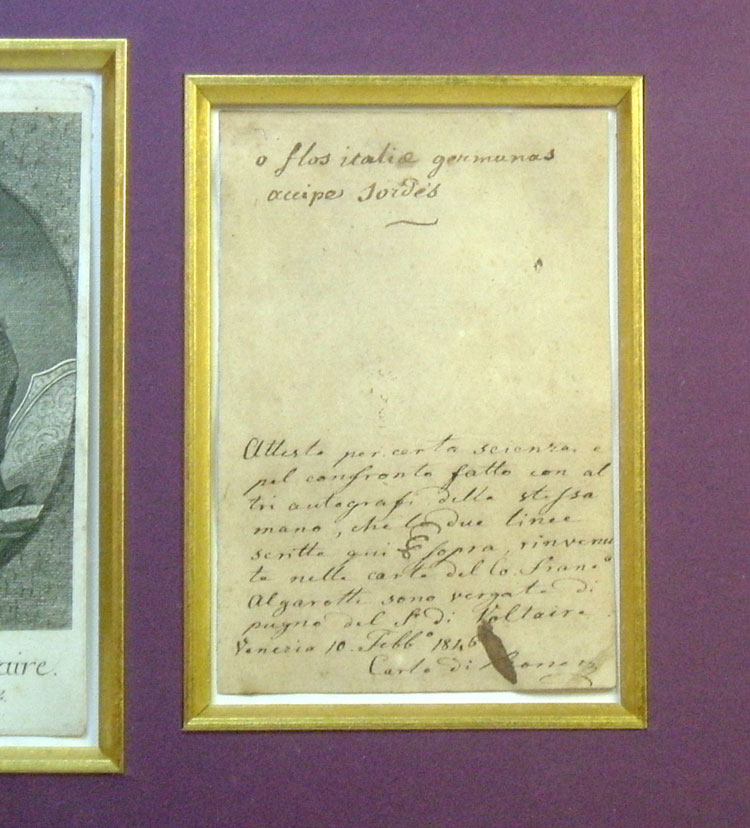 o flos italiæ germanas
accipe sordes
Attesto per certa scienza, e
pel confronto fatto con al
tri autografi della stessa
mano, che le due linee
scritte qui sopra, rinvenu
te nelle carte del Co. Franc.º
Algarotti sono vergate di
pugno del Sr. di Voltaire.
Venezia 10. Febbº 1846
Carlo di
aire.